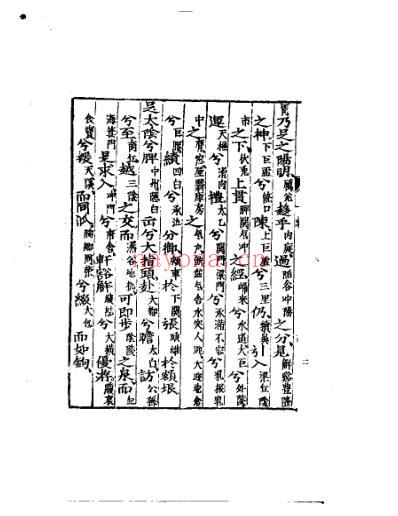 胃乃足之陽明厲兌趨乎內庭過陷谷冲陽之分見解谿豐隆
之神下巨虛兮條口陳上巨虛兮三里仍犢鼻引入梁丘陰
市之下伏兔上貫髀關氣冲之經歸來兮水道大巨兮外陵
運天樞兮滑肉禮太乙兮關門梁門兮承滿不容兮乳根乳
中之膺窓屋翳庫房之氣戶缺盆氣舍水突人迎大迎地倉
兮巨髎續四白兮承泣分御頰車於下關張頭維於額垠
足太陰兮脾中州隱白出兮大指頭赴大都兮瞻太白訪公孫
兮至商丘越三陰之交而漏谷地機可即步陰陵之泉而血
海箕門是求入冲門兮府舍軒豁解腹結兮大橫優游腹哀
食竇兮接天谿而同派胸鄉周榮兮綴大包而如鉤